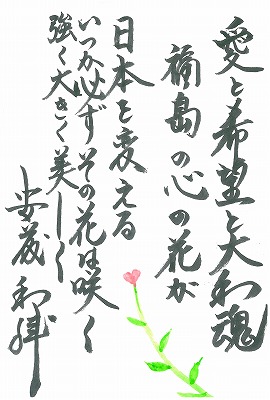 愛と希望と大和魂
福島の心の花が
日本を変える
いつか必ずその花は咲く
強く大きく美しく
安蔵